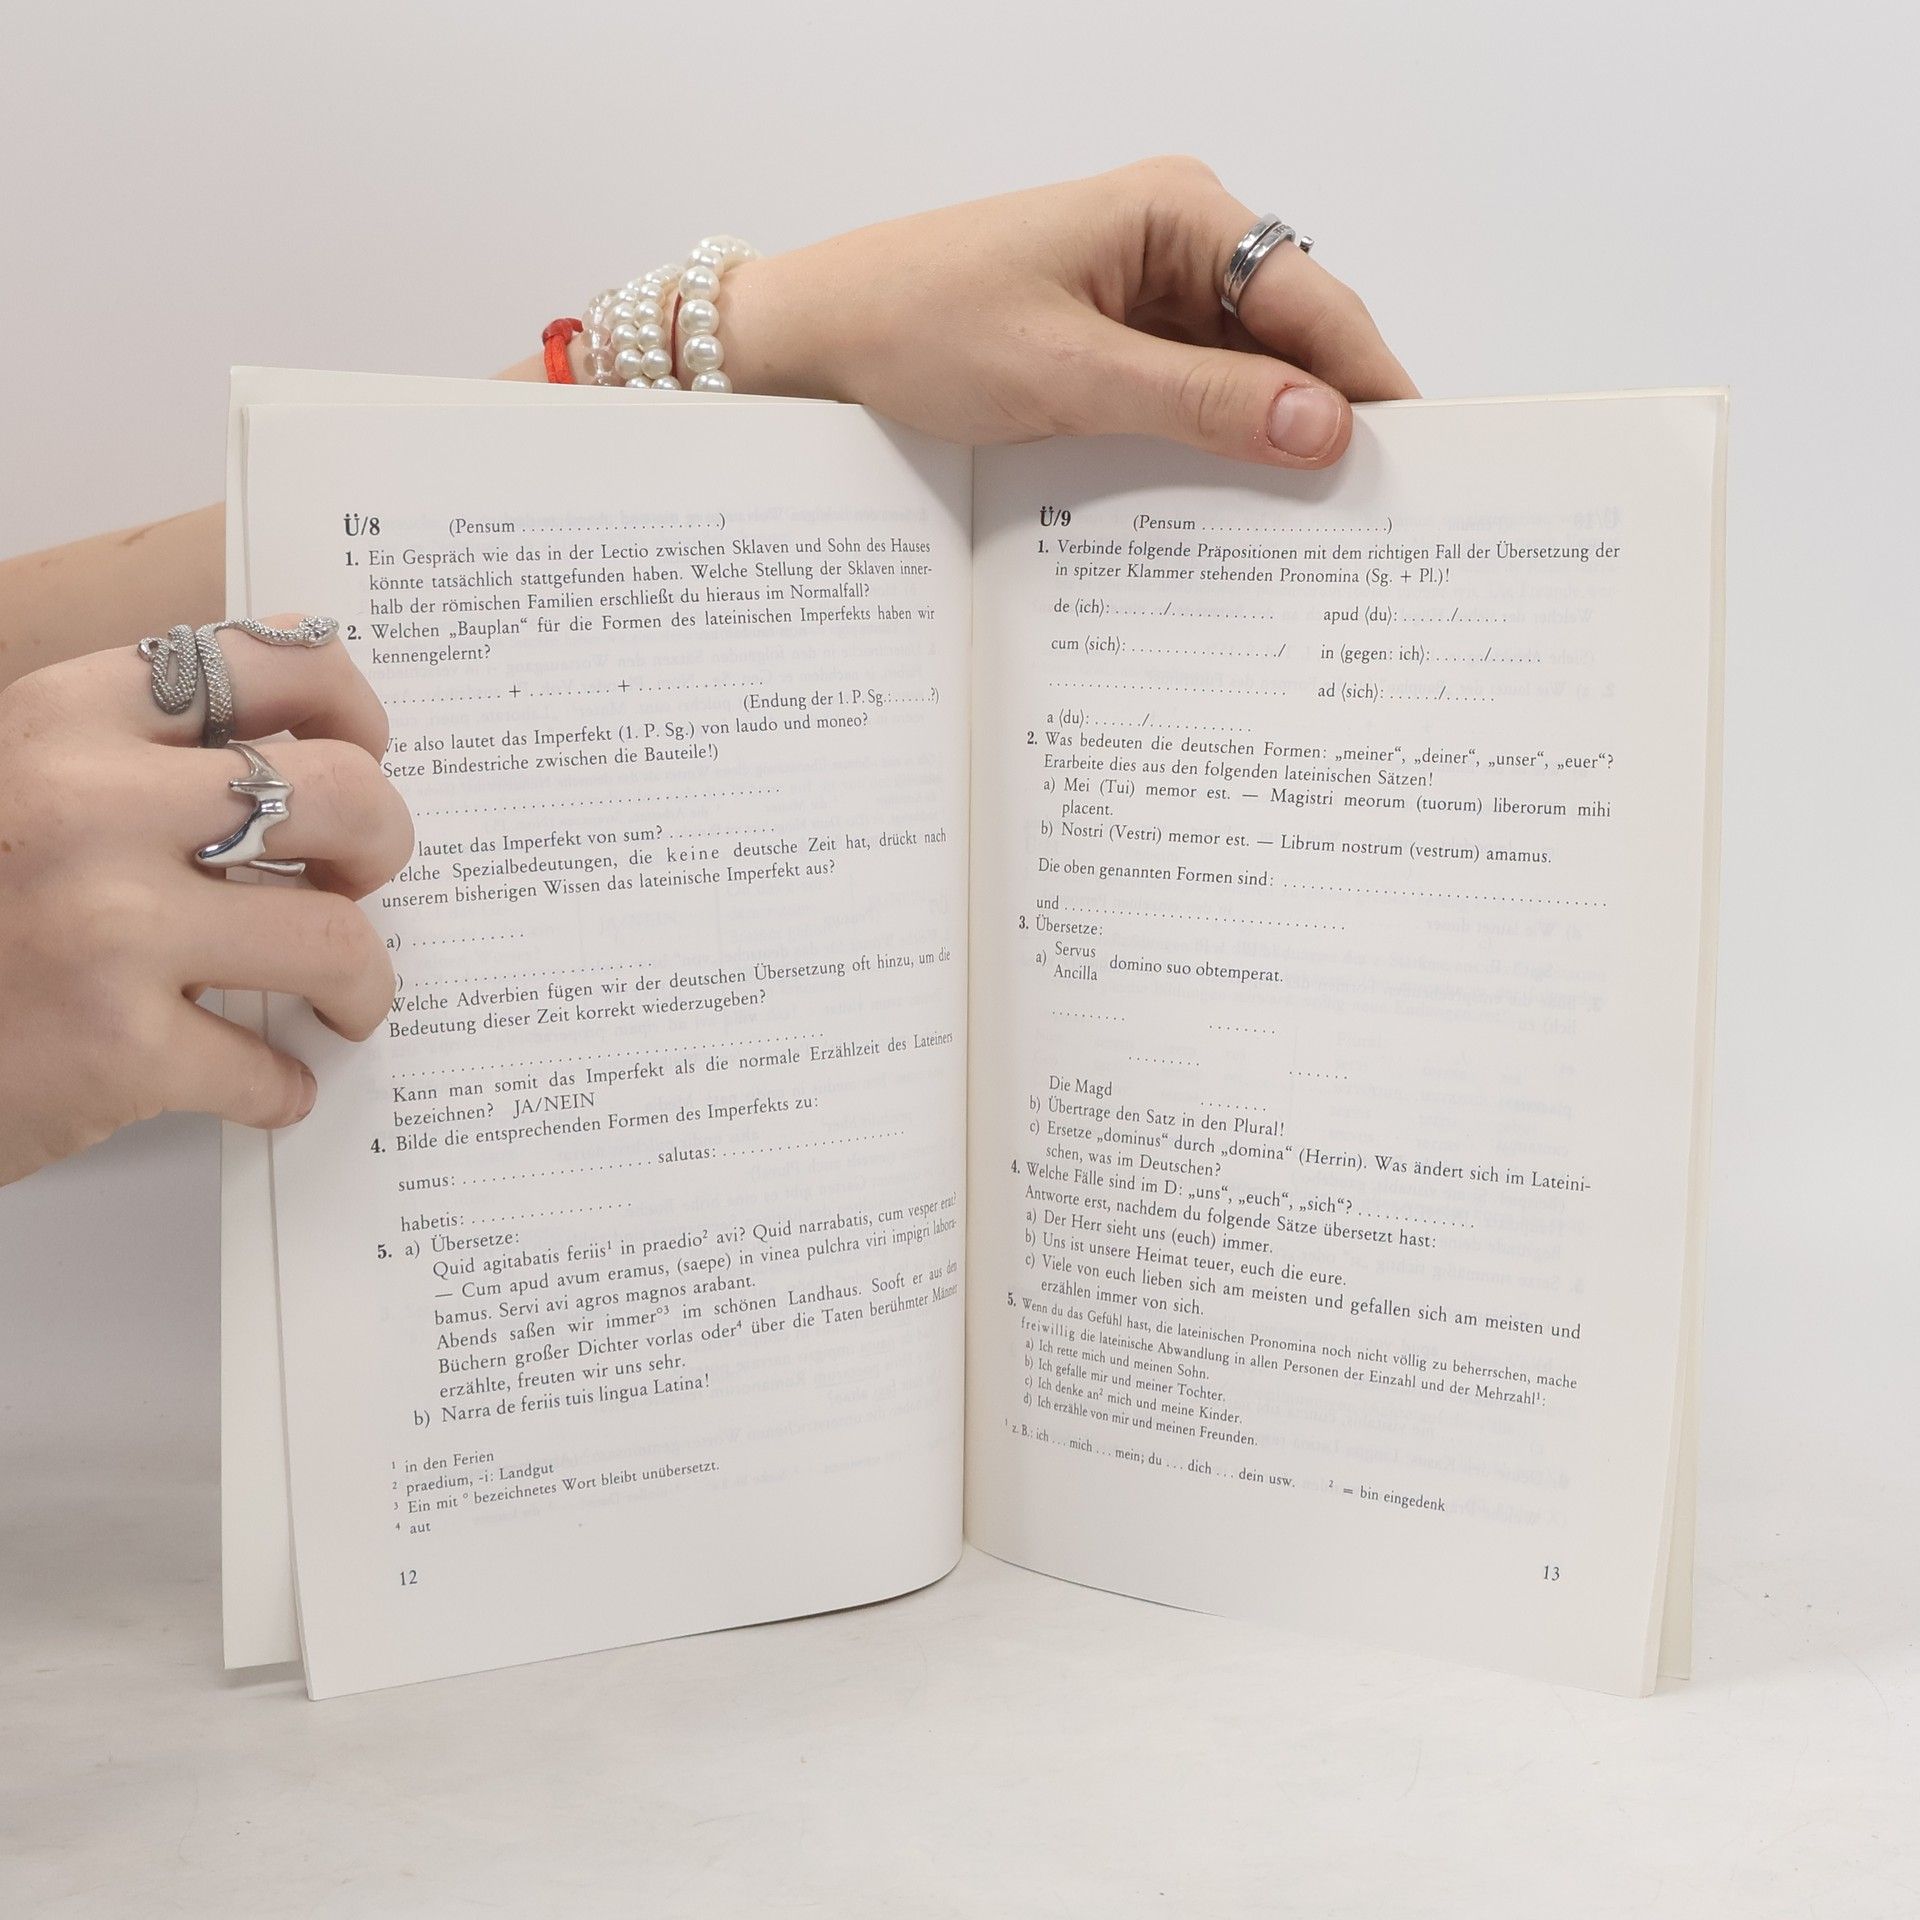 Ü/8 (Pensum ......................)
1. Ein Gespräch wie das in der Lectio zwischen Sklaven und Sohn des Hauses
könnte tatsächlich stattgefunden haben. Welche Stellung der Sklaven inner-
halb der römischen Familien erschließt du hieraus im Normalfall?
2. Welchen „Bauplan“ für die Formen des lateinischen Imperfekts haben wir
kennengelernt?
............ + ......... + ..............
(Endung der 1. P. Sg.: ......?)
also lautet das Imperfekt (1. P. Sg.) von laudo und moneo?
Setze Bindestriche zwischen die Bauteile!)
........................................
lautet das Imperfekt von sum? ............
Spezialbedeutungen, die keine deutsche Zeit hat, drückt nach
unserem bisherigen Wissen das lateinische Imperfekt aus?
a) ............
) ..........................
Welche Adverbien fügen wir der deutschen Übersetzung oft hinzu, um die
Bedeutung dieser Zeit korrekt wiederzugeben?
................................................
Kann man somit das Imperfekt als die normale Erzählzeit des Lateiners
bezeichnen? JA/NEIN
4. Bilde die entsprechenden Formen des Imperfekts zu:
sumus: ...................... salutas: .....................
habetis: ..................
5. a) Übersetze:
Quid agitabatis feriis¹ in praedio² avi? Quid narrabatis, cum vesper erat?
— Cum apud avum eramus, (saepe) in vinea pulchra viri impigri labora-
bamus. Servi avi agros magnos arabant.
Abends saßen wir immer°³ im schönen Landhaus. Sooft er aus den
Büchern großer Dichter vorlas oder⁴ über die Taten berühmter Männer
erzählte, freuten wir uns sehr.
b) Narra de feriis tuis lingua Latina!
¹ in den Ferien
² praedium, -i: Landgut
³ Ein mit ° bezeichnetes Wort bleibt unübersetzt.
⁴ aut
12
Ü/9 (Pensum ......................)
1. Verbinde folgende Präpositionen mit dem richtigen Fall der Übersetzung der
in spitzer Klammer stehenden Pronomina (Sg. + Pl.)!
de ⟨ich⟩: ....../............ apud ⟨du⟩: ....../......
cum ⟨sich⟩: ................./ in ⟨gegen: ich⟩: ....../......
........................... ad ⟨sich⟩: ....../......
a ⟨du⟩: ....../............
2. Was bedeuten die deutschen Formen: „meiner“, „deiner“, „unser“, „euer“?
Erarbeite dies aus den folgenden lateinischen Sätzen!
a) Mei (Tui) memor est. — Magistri meorum (tuorum) liberorum mihi
placent.
b) Nostri (Vestri) memor est. — Librum nostrum (vestrum) amamus.
Die oben genannten Formen sind: ....................................
und ................................
3. Übersetze:
a) Servus
Ancilla domino suo obtemperat.
.......... ........
.......... .......
Die Magd ........
b) Übertrage den Satz in den Plural!
c) Ersetze „dominus“ durch „domina“ (Herrin). Was ändert sich im Lateini-
schen, was im Deutschen?
4. Welche Fälle sind im D: „uns“, „euch“, „sich“? .............
Antworte erst, nachdem du folgende Sätze übersetzt hast:
a) Der Herr sieht uns (euch) immer.
b) Uns ist unsere Heimat teuer, euch die eure.
c) Viele von euch lieben sich am meisten und gefallen sich am meisten und
erzählen immer von sich.
5. Wenn du das Gefühl hast, die lateinischen Pronomina noch nicht völlig zu beherrschen, mache
freiwillig die lateinische Abwandlung in allen Personen der Einzahl und der Mehrzahl¹:
a) Ich rette mich und meinen Sohn.
b) Ich gefalle mir und meiner Tochter.
c) Ich denke an² mich und meine Kinder.
d) Ich erzähle von mir und meinen Freunden.
¹ z. B.: ich ... mich ... mein; du ... dich ... dein usw. ² = bin eingedenk
13